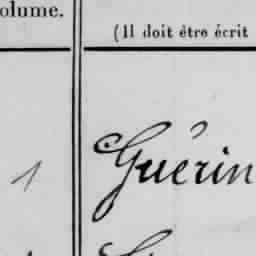 olume.
(Il doit être écrit
1
Guérin